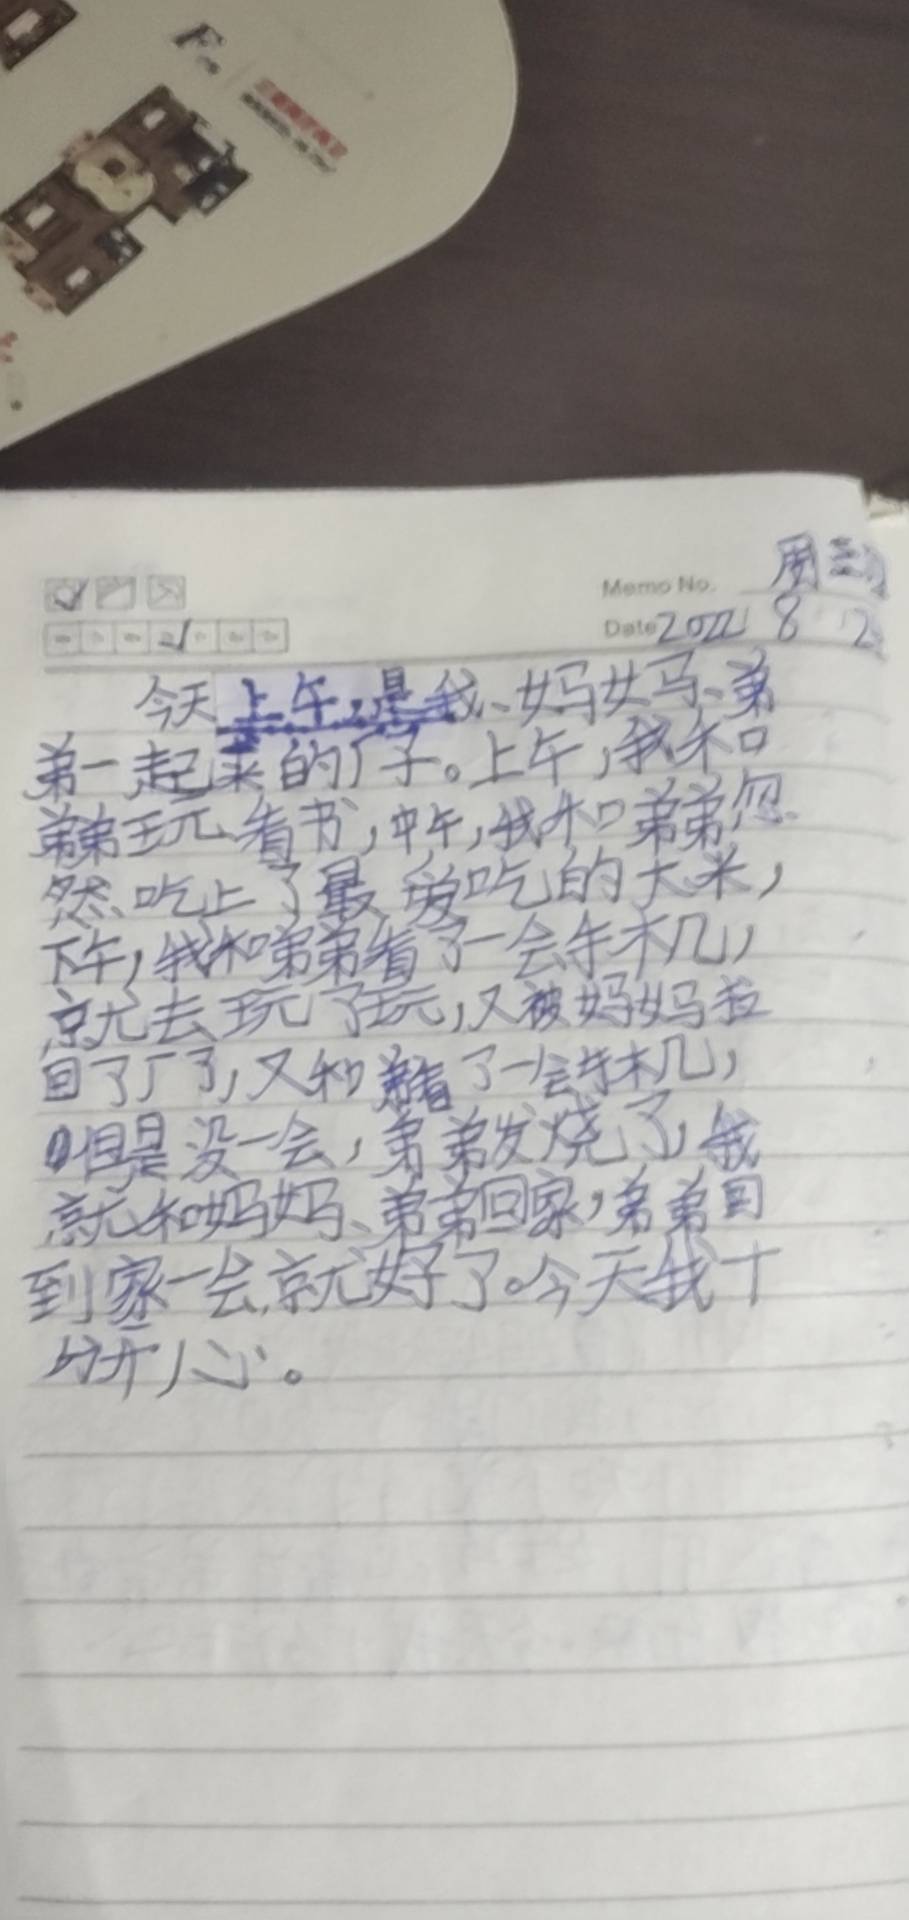 F
Memo No.
周三
Date 2022 8 2
今天上午,是我、妈妈、弟
弟一起来的厂子。上午,我和
弟弟玩看书,中午,我和弟弟忽
然吃上了最爱吃的大米,
下午,我和弟弟看了一会手机,
就去玩了玩,又被妈妈拉
回了厂了,又和弟看了一会手机,
但是没一会,弟弟发烧了,我
就和妈妈、弟弟回家,弟弟回
到家一会就好了。今天我十
分开心。